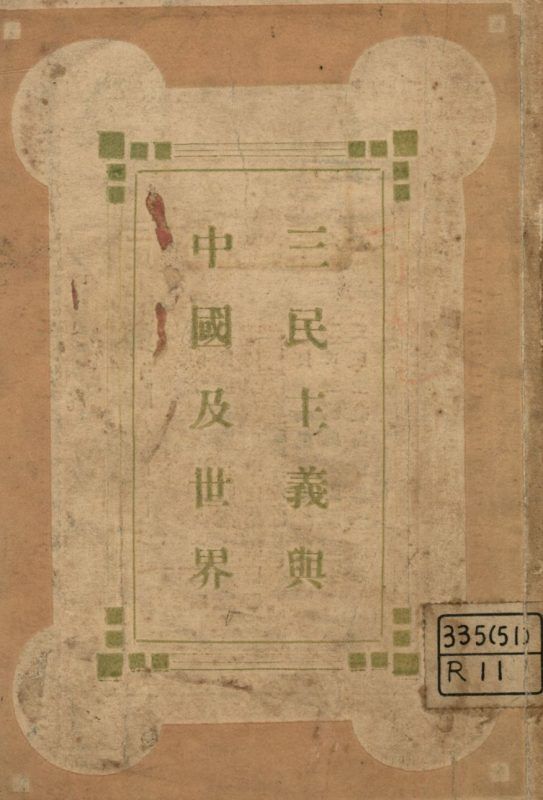 三民主義與
中國及世界
335(51)
R11